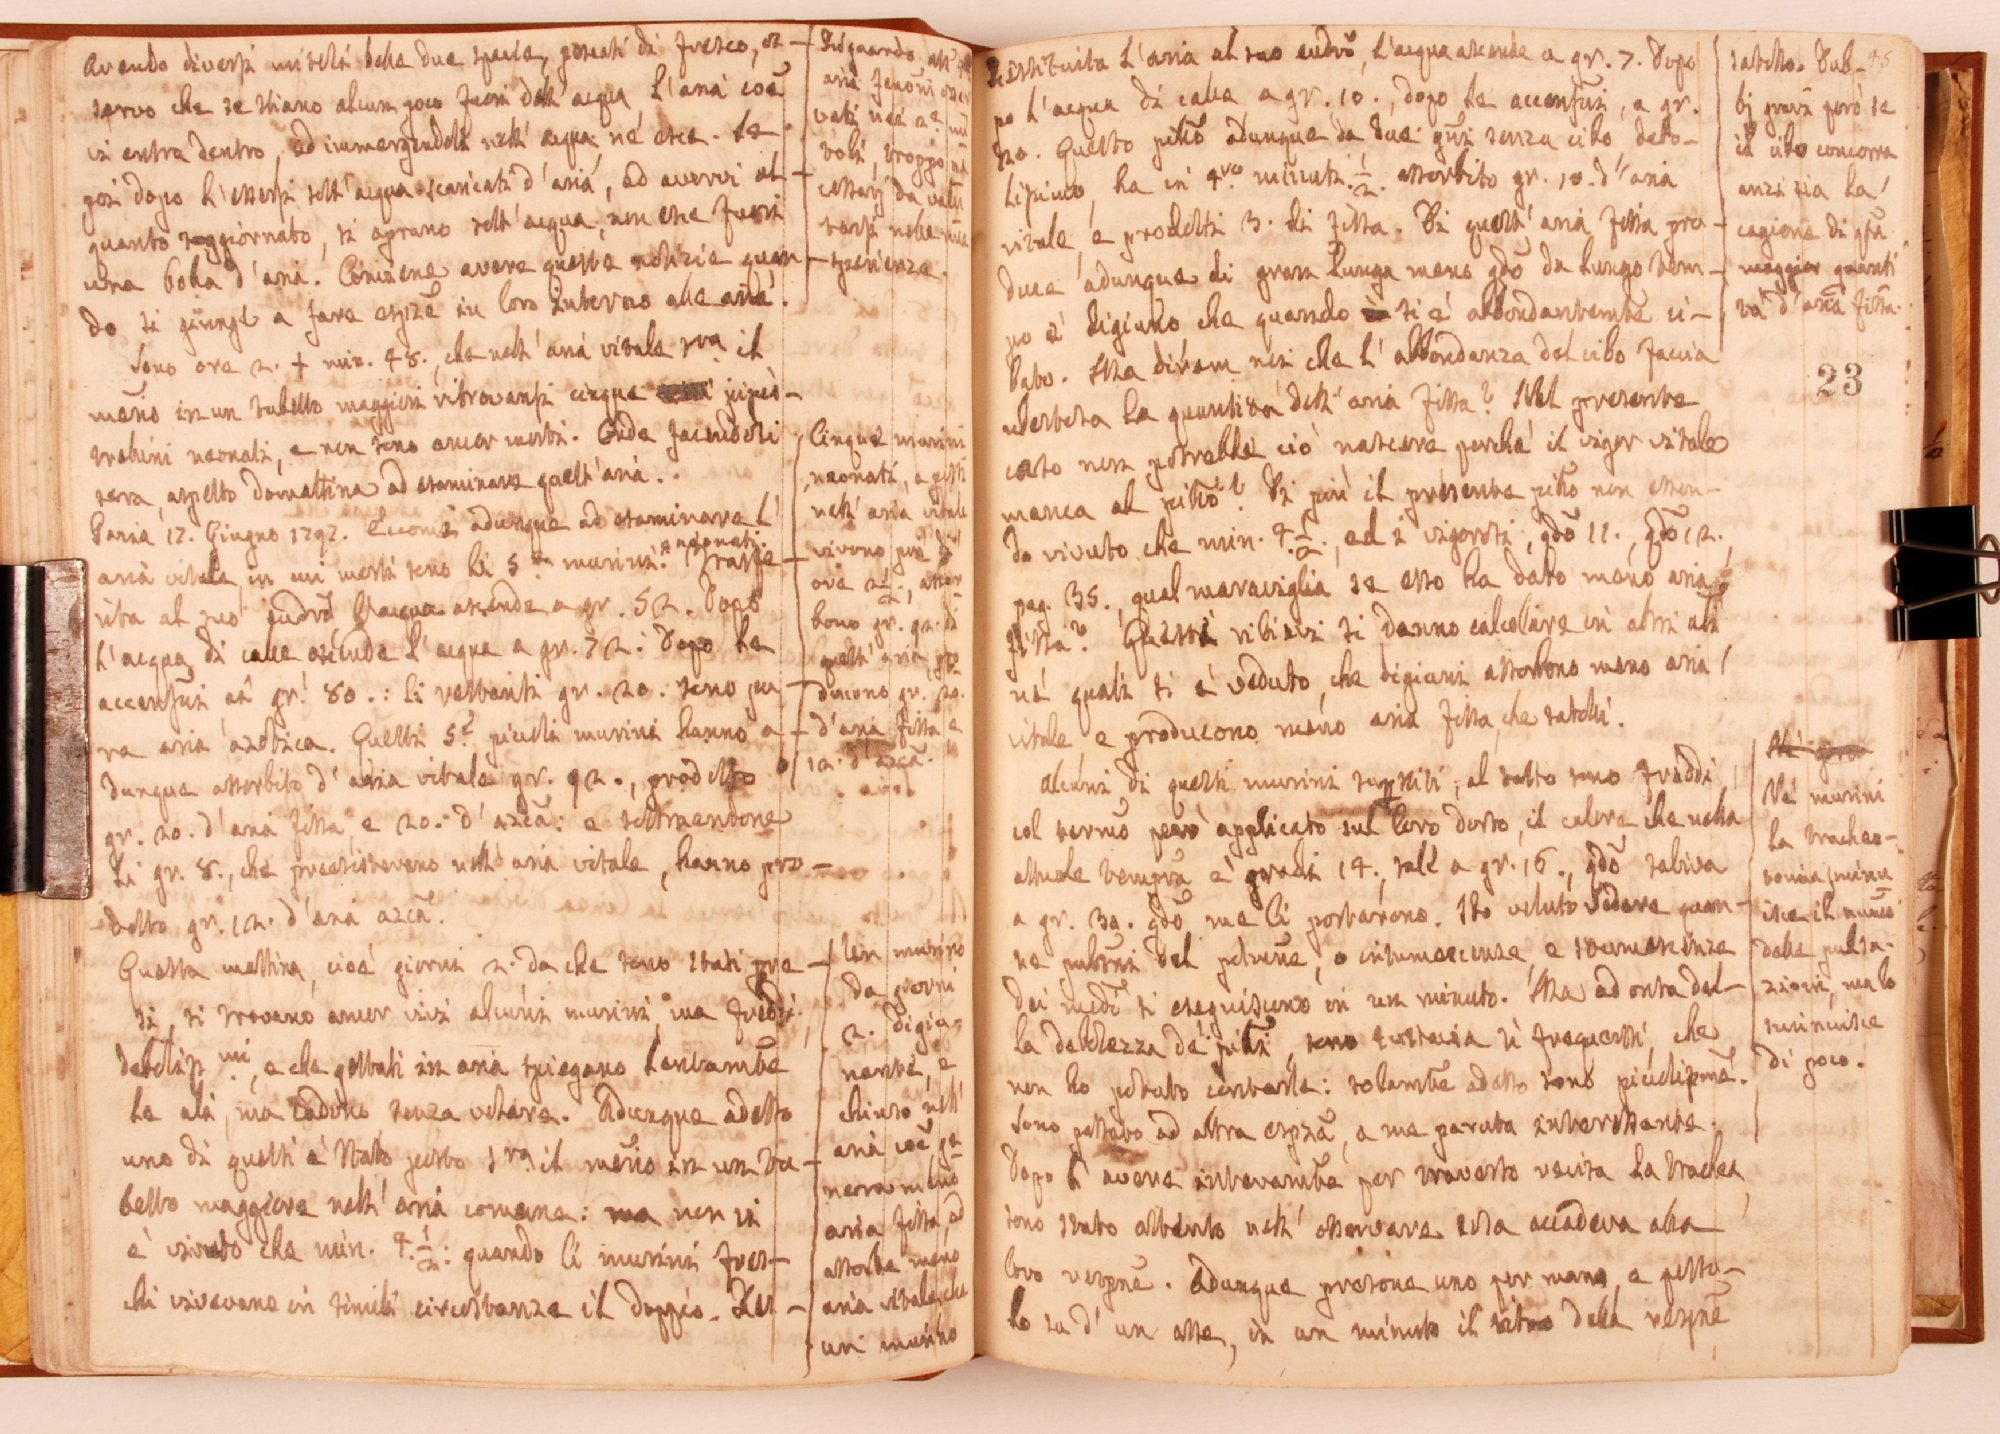 Avendo diversi mitoli delle due specie, pescati di fresco, os-
servo che se stiano alcun poco fuori dell'acqua l'aria coe
vi entra dentro, ed immergendoli nell'acqua ne esce. Se
poi dopo l'essersi nell'acqua scaricati d'aria, ed avervi al-
quanto soggiornato, si aprano sott'acqua, non esce fuori
una bolla d'aria. Conviene avere queste notizie quan-
do si giunge a fare espze su loro intorno alle arie.
Sono ore 2. + min. 48. che nell'aria vitale sul
merio in un tubetto maggiore ritrovansi cinque pipis-
trelini neonati, e non sono ancor morti. Onde facendosi
sera, aspetto domattina ad esaminare quest'aria.
Pavia 17. Giugno 1797. Eccomi adunque ad esaminare l'
aria vitale, in cui morti sono li 5 murini neonati. Trasfe-
rita al suo eudro l'acqua ascende a gr. 52. Dopo
l'acqua di calce ascende l'acqua a gr. 72: Dopo le
accensioni a gr. 80.: li restanti gr. 20. sono pu-
ra aria azotica. Questi 5 piccoli murini hanno a-
dunque assorbito d'aria vitale gr. 92., prodotto
gr. 20. d'aria fissa e 20. d'azca: e sottraendone
li gr. 8., che preesistevano nell'aria vitale, hanno pro-
dotto gr. 12. d'aria azca.
Questa mattina, cioè giorni 2. da che sono stati pre-
si, si trovano ancor vivi alcuni murini, ma freddi,
debolissmi, e che gettati in aria spiegano lentamte
le ali, ma cadono senza volare. Adunque adesso
uno di questi è stato posto sul merio in un tu-
betto maggiore nell'aria comune: ma non vi
è vivuto che min. 4. 1/2: quando li murini fres-
chi vivevano in simili circostanze il doppio. Res-
Risguardo all'
aria
vati nei
voli, troppo ne
cessarj da valu
tarsi nelle mie
sperienze.
Cinque murini
neonati, e posti
nell'aria vitale
vivono più di
ore 2 1/2, assor
bono gr. 92. di
quest'aria, pro
ducono gr. 20.
d'aria fissa e
12. d'azca.
Un murino
da giorni
2. digiu-
nante, e
chiuso nell'
aria coe ge
nera meno
aria fissa, ed
assorbe meno
aria vitale, che
un murino
Restituita l'aria al suo eudro, l'acqua ascende a gr. 7. Dopo
po l'acqua di calce a gr. 10., dopo le accensioni, a gr.
20. Questo piltro adunque da due gni senza cibo debo-
lissimo, ha in 4 minuti 1/2 assorbito gr. 10. d'aria
vitale, e prodotti 3. di fissa. Di quest'aria fissa pro-
duce adunque di gran lunga meno gdo da lungo tem-
po è digiuno che quando si è abbondantemte ci-
bato. Ma direm noi che l'abbondanza del cibo faccia
crescere la quantità dell'aria fissa? Nel presente
caso non potrebbe ciò nascere perchè il vigor vitale
manca al piltro? Di più il presente piltro non essen-
do vivuto che min. 4. 1/2, ed i vigorosi, gdo 11., gdo 12.,
pag. 35., qual maraviglia se esso ha dato meno aria
fissa? Questi riflessi si danno calcolare in altri
ne' quali si è veduto, che digiuni assorbono meno aria
vitale, e producono meno aria fissa, che satolli.
Alcuni di questi murini, al tatto sono freddi,
col termo però applicato sul loro dorso, il calore che nella
attuale tempra è gradi 14., sale a gr. 16., gdo saliva
a gr. 30. gdo me li portarono. Ho veluto vedere quan-
te pulsni del polmone, o intumescenze, e
dei medi si eseguiscono in un minuto. Ma ad onta del-
la debolezza de' piltri, sono tuttavia sì frequenti, che
non ho potuto contarle: solamte adesso sono piccolissme.
Sono passato ad altra espza, a me paruta interessante.
Dopo l'avere interamte per traverso recisa la trachea
sono stato attento nell'osservare cosa accadeva alla
loro respne. Adunque presone uno per mano, e posto-
lo su d'un asse, in un minuto il ritmo della respne
satollo. Dub- 45
bj gravi però se
il cibo concorra
anzi sia la
cagione di qsta
maggior quanti
tà d'aria fissa.
23
Ne' murini
la tracheo-
tomia sminu
isce il numo
delle pulsa-
zioni, ma lo
sminuisce
di poco.